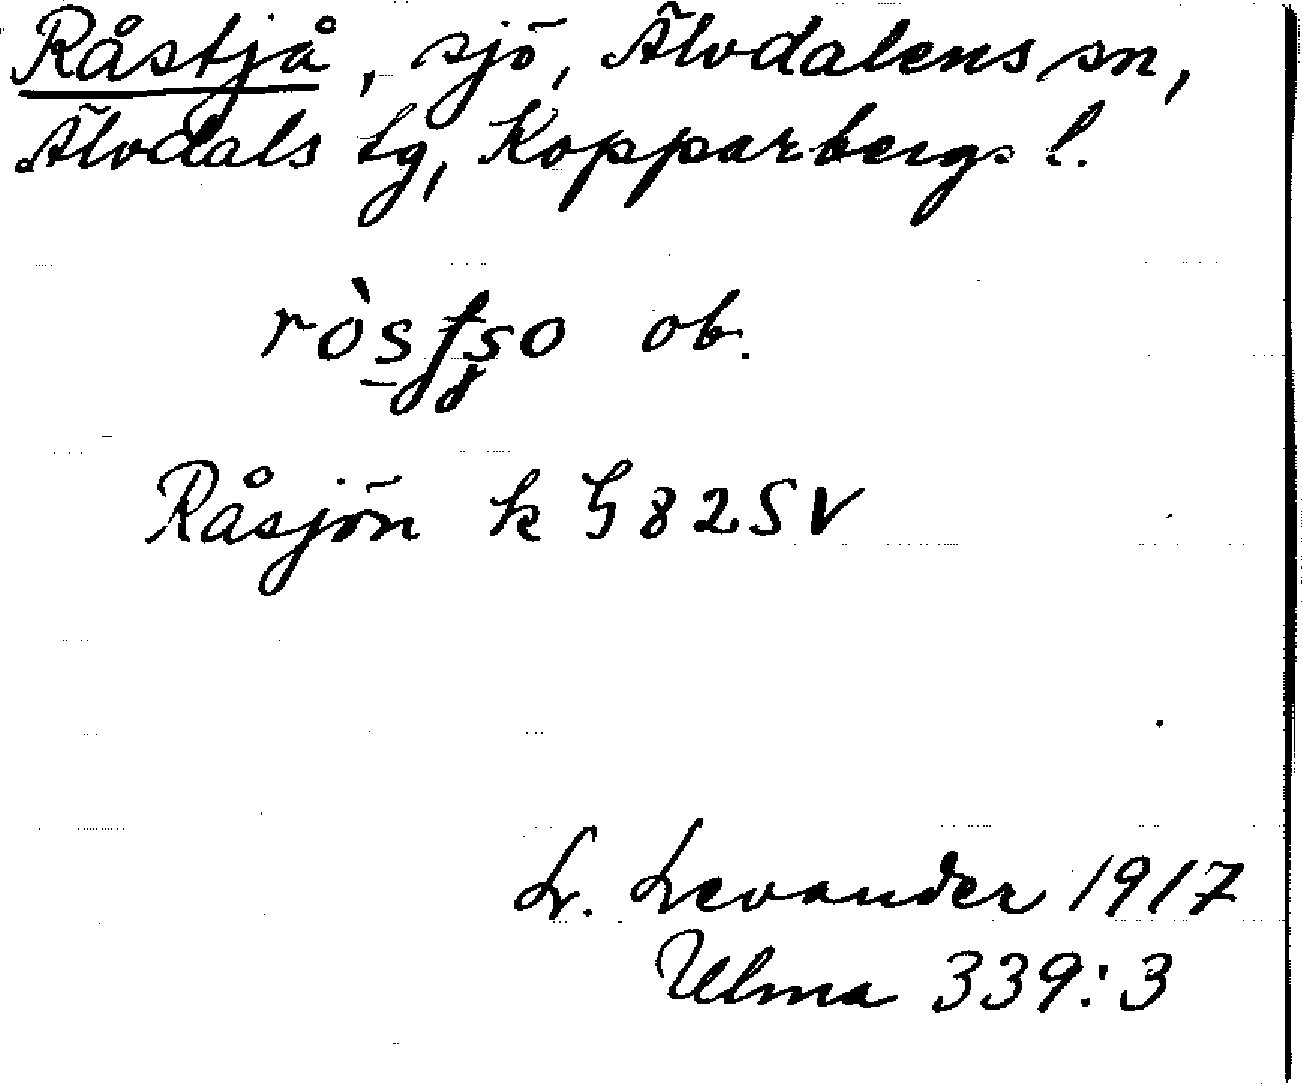 Råstjå, sjö, Älvdalens sn,
Älvdals tg, Kopparbergs l.
ob.
Råsjön k G 82 SV
L. Levander 1917
Ulma 339:3